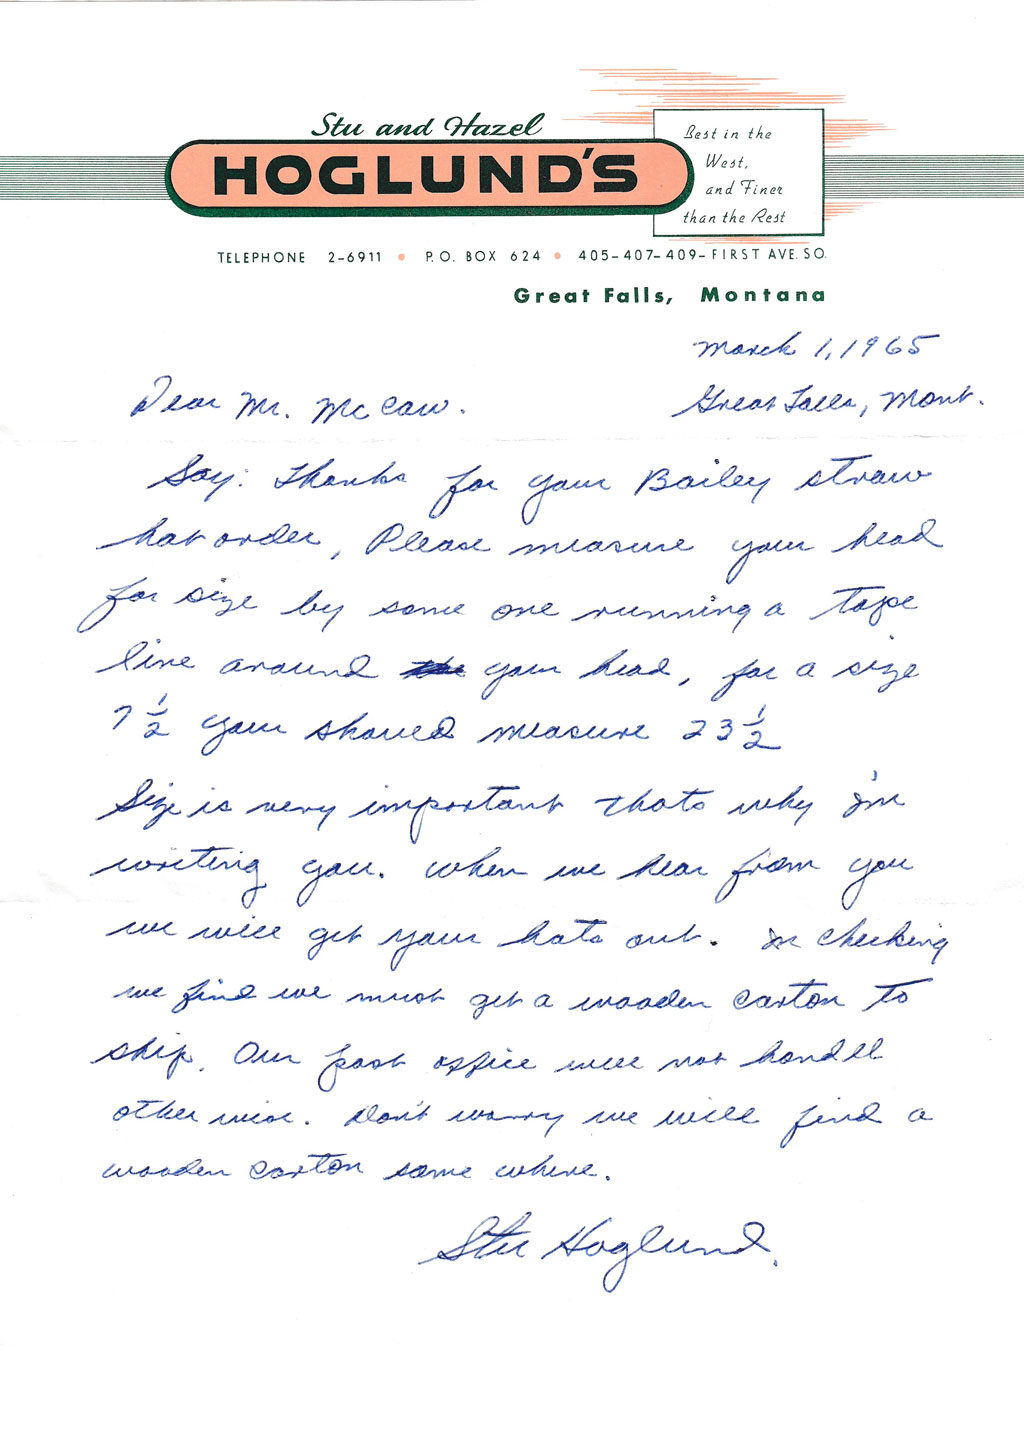 Stu and Hazel
HOGLUND'S
Best in the
West,
and Finer
than the Rest
TELEPHONE 2-6911 • P.O. BOX 624 • 405-407-409-FIRST AVE. SO.
Great Falls, Montana
March 1, 1965
Dear Mr. McCaw. Great Falls, Mont.
Say: Thanks for your Bailey straw
hat order, Please measure your head
for size by some one running a tape
line around your head, for a size
7 1/2 your should measure 23 1/2
Size is very important thats why I'm
writing you. When we hear from you
we will get your hats out. In checking
we find we must get a wooden carton to
ship. Our post office will not handll
other wise. Don't worry we will find a
wooden carton some where.
Stu Hoglund.